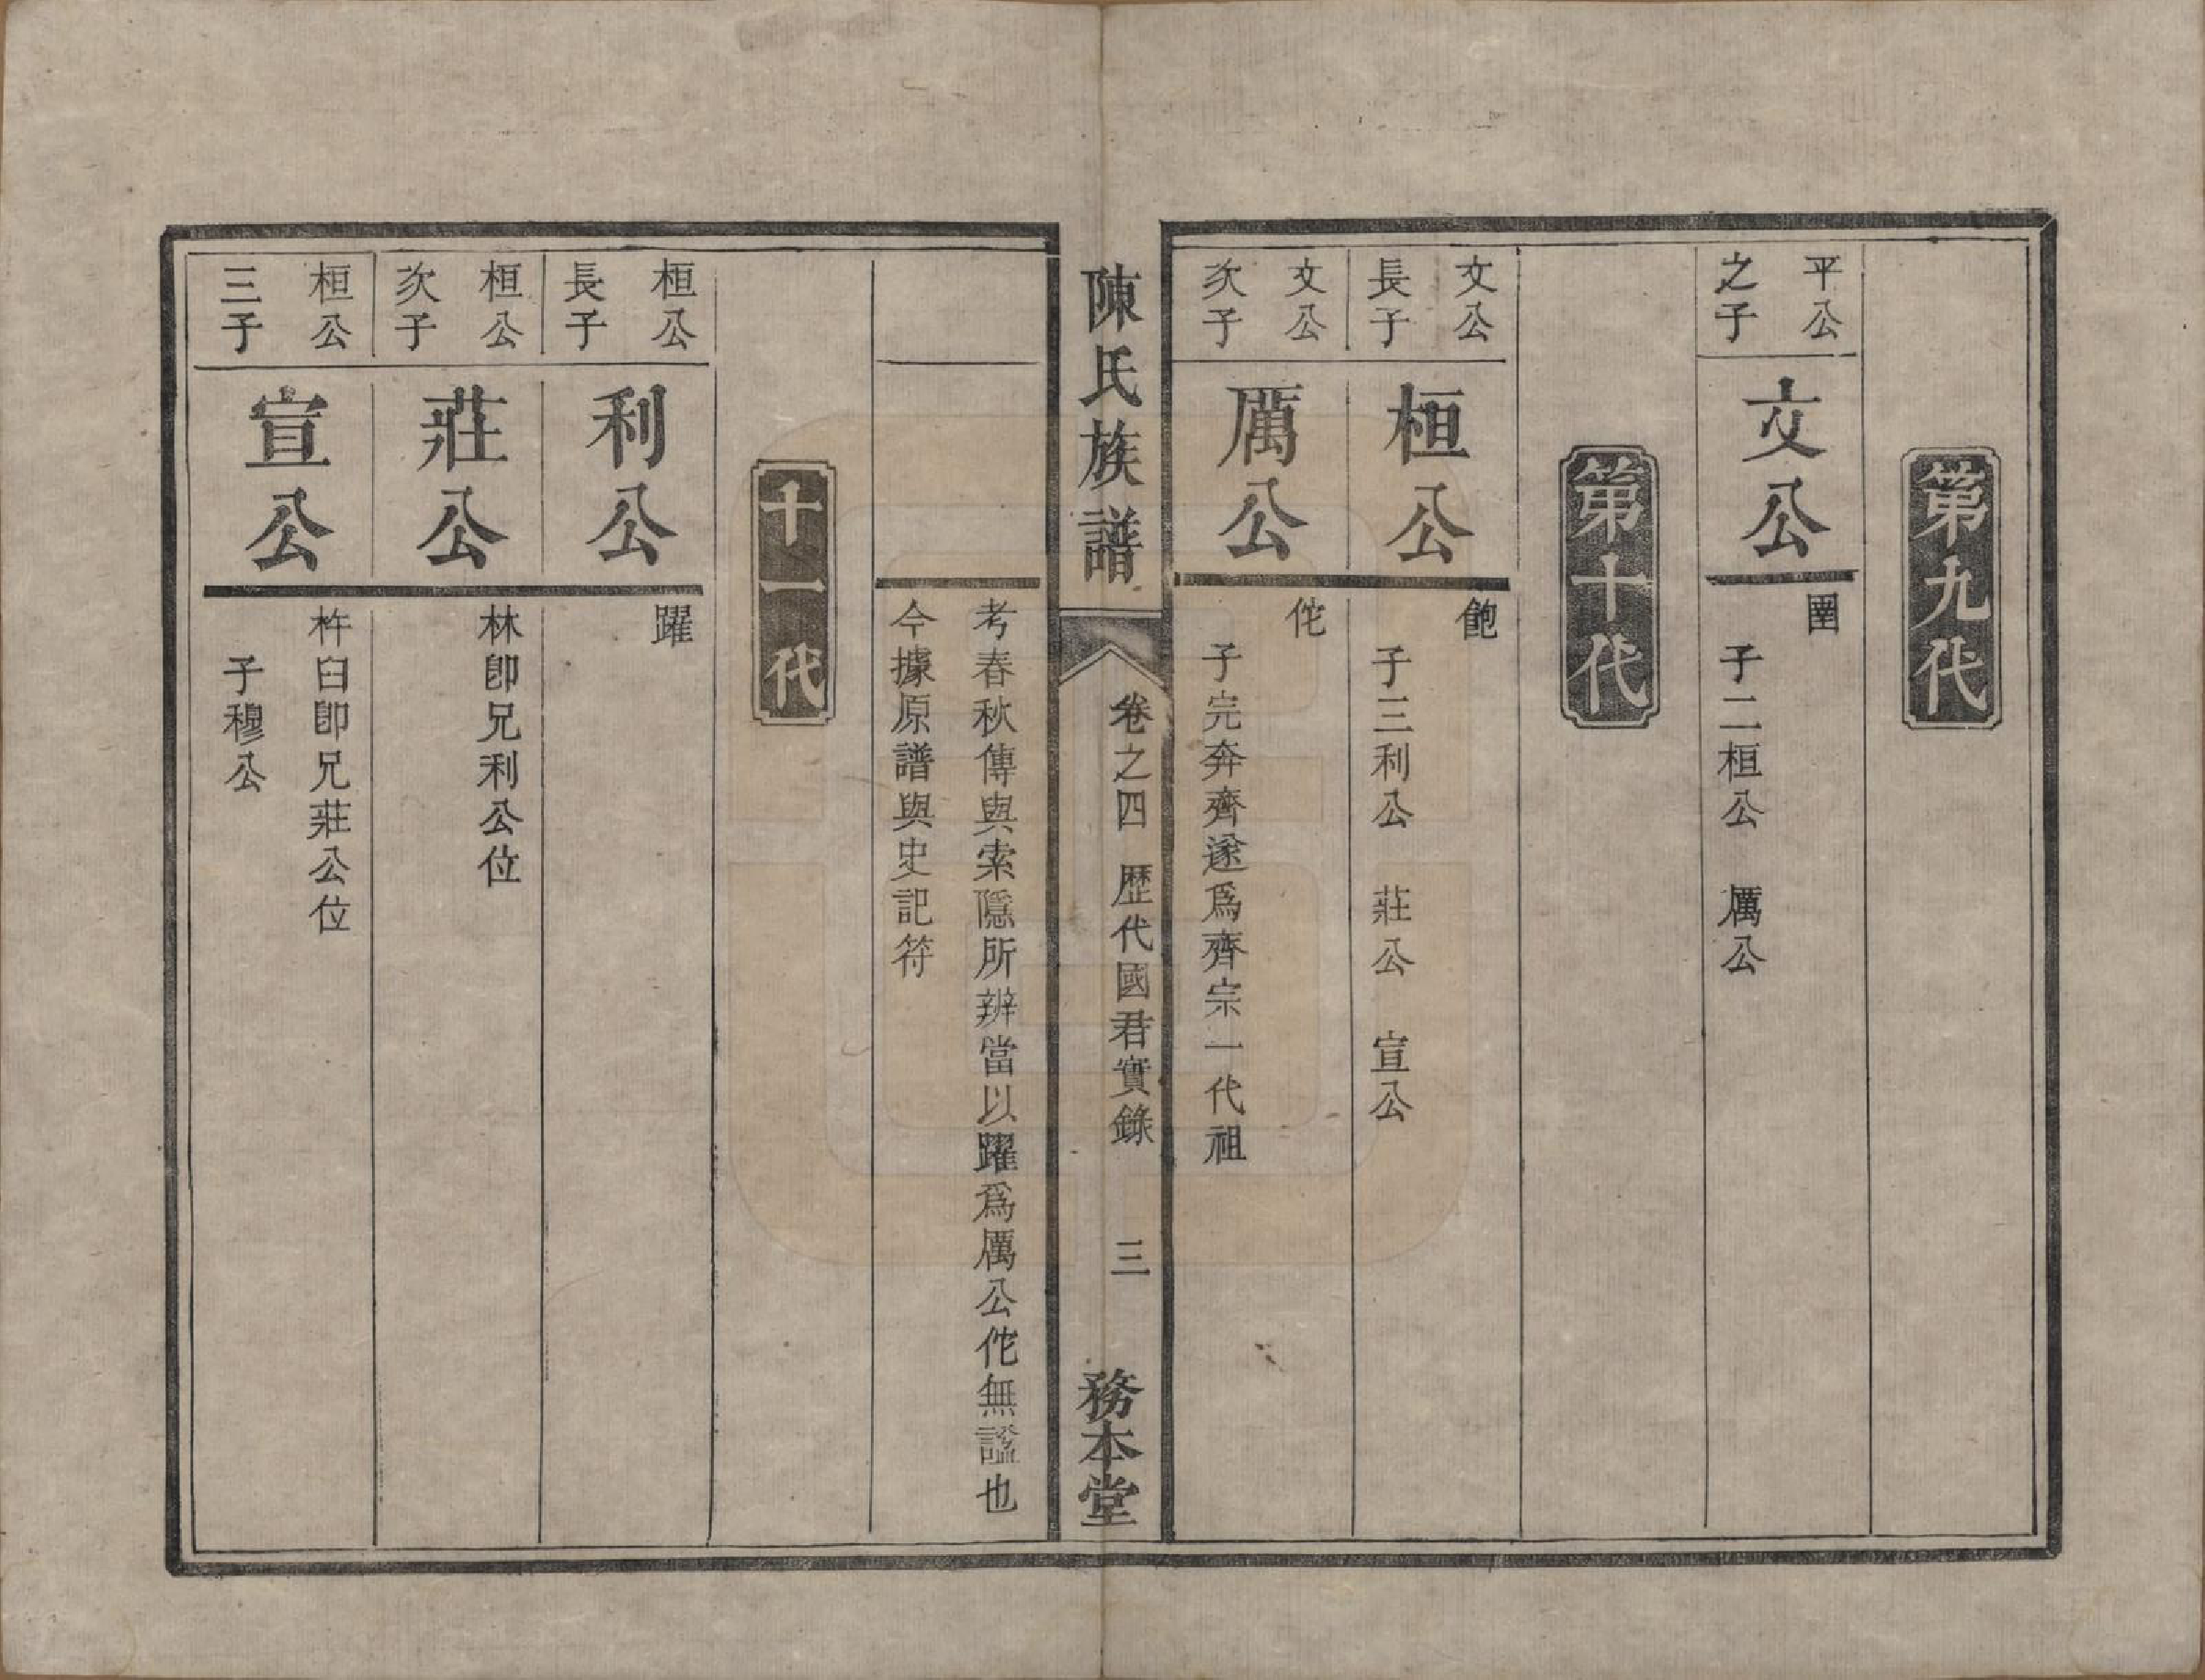 第九代
平公
之子
文公
圉
子二桓公　厲公
第十代
文公
長子
桓公
鮑
子三利公　莊公　宣公
文公
次子
厲公
佗
子完奔齊遂爲齊宗一代祖
陳氏族譜
卷之四　歴代國君實錄　三
務本堂
考春秋傳與索隱所辨當以躍爲厲公佗無謚也
今據原譜與史記符
十一代
桓公
長子
利公
躍
桓公
次子
莊公
林卽兄利公位
桓公
三子
宣公
杵臼卽兄莊公位
子穆公